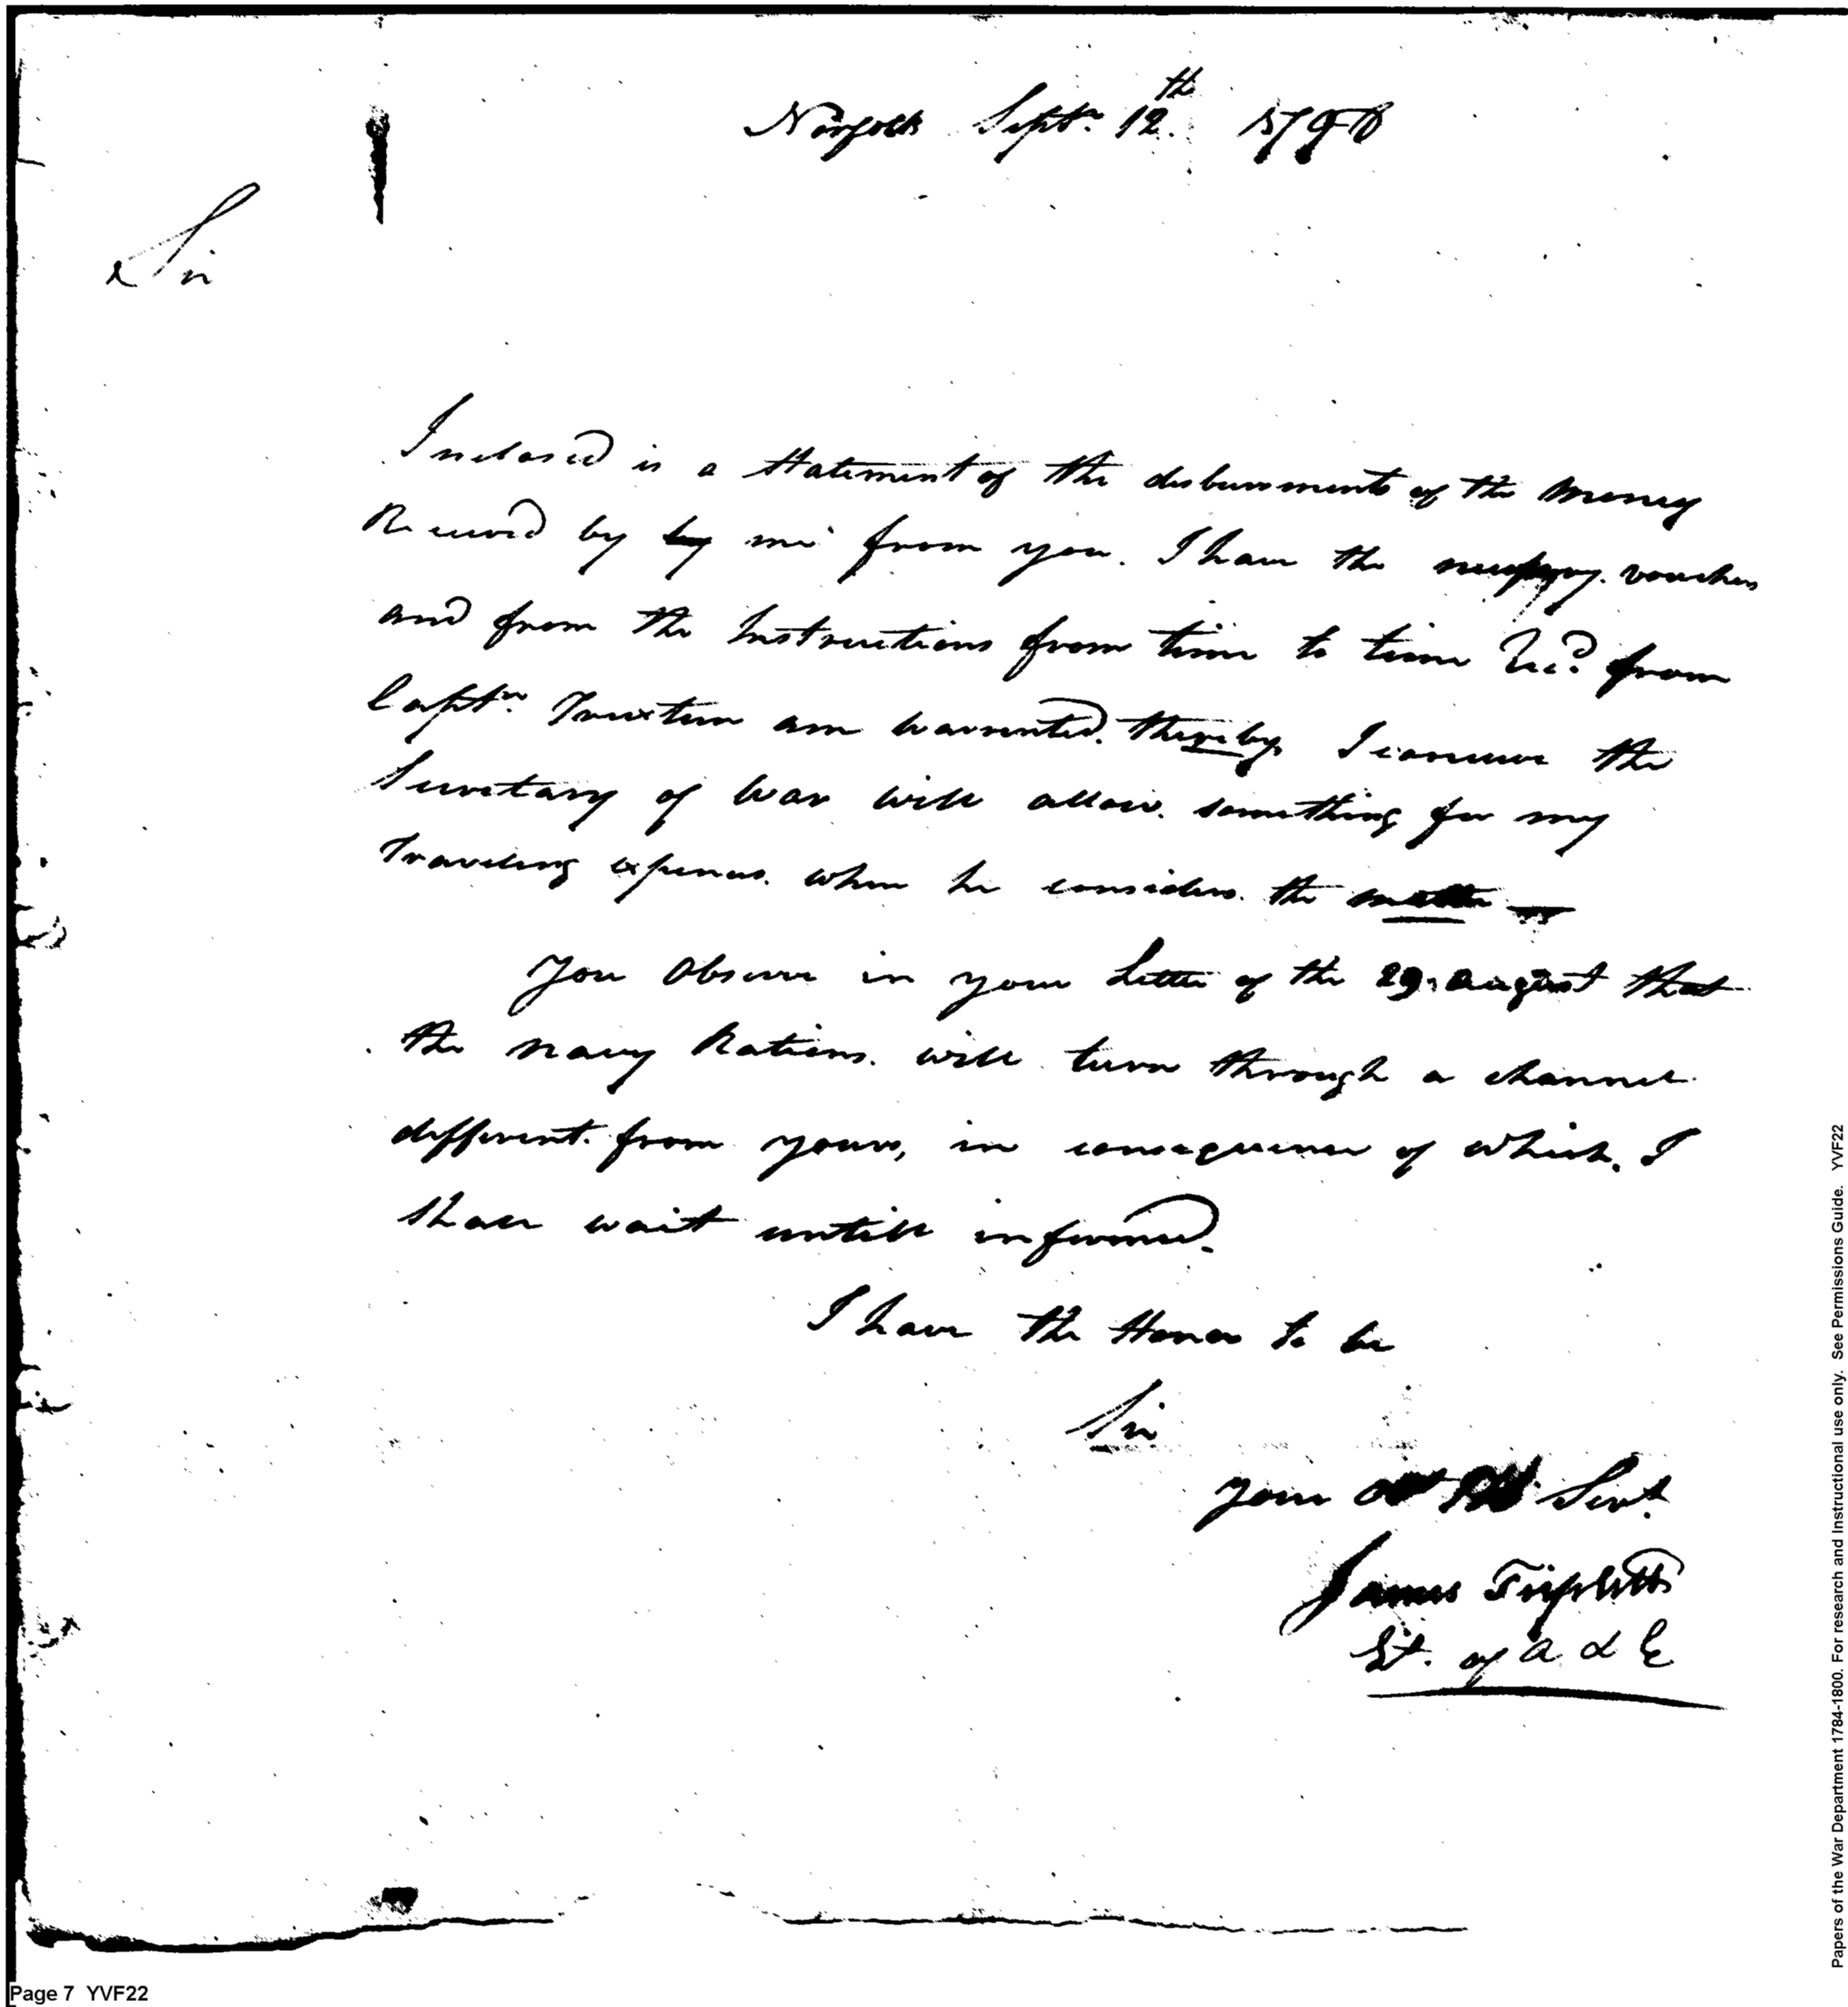 Norfolk Septr. 12th. 1798
Sir
Inclosed is a Statement of the disbursments of the money
Received by by me from you. I have the necessary vouchers
and from the Instructions from time to time Recd. from
Captn. Truxtun am warrented. thereby I conceive the
Secretary of War will allow something for my
Traveling expences when he considers the matter
You Observe in your Letter of the 29. August that
the navy Rations will turn through a channel
different from yours, in consequence of which, I
shall wait untill informed.
I have the Honor to be
Sir
your Servt.
James Triplett
Lt. of A & E
Page 7 YVF22
Papers of the War Department 1784-1800. For research and Instructional use only. See Permissions Guide. YVF22